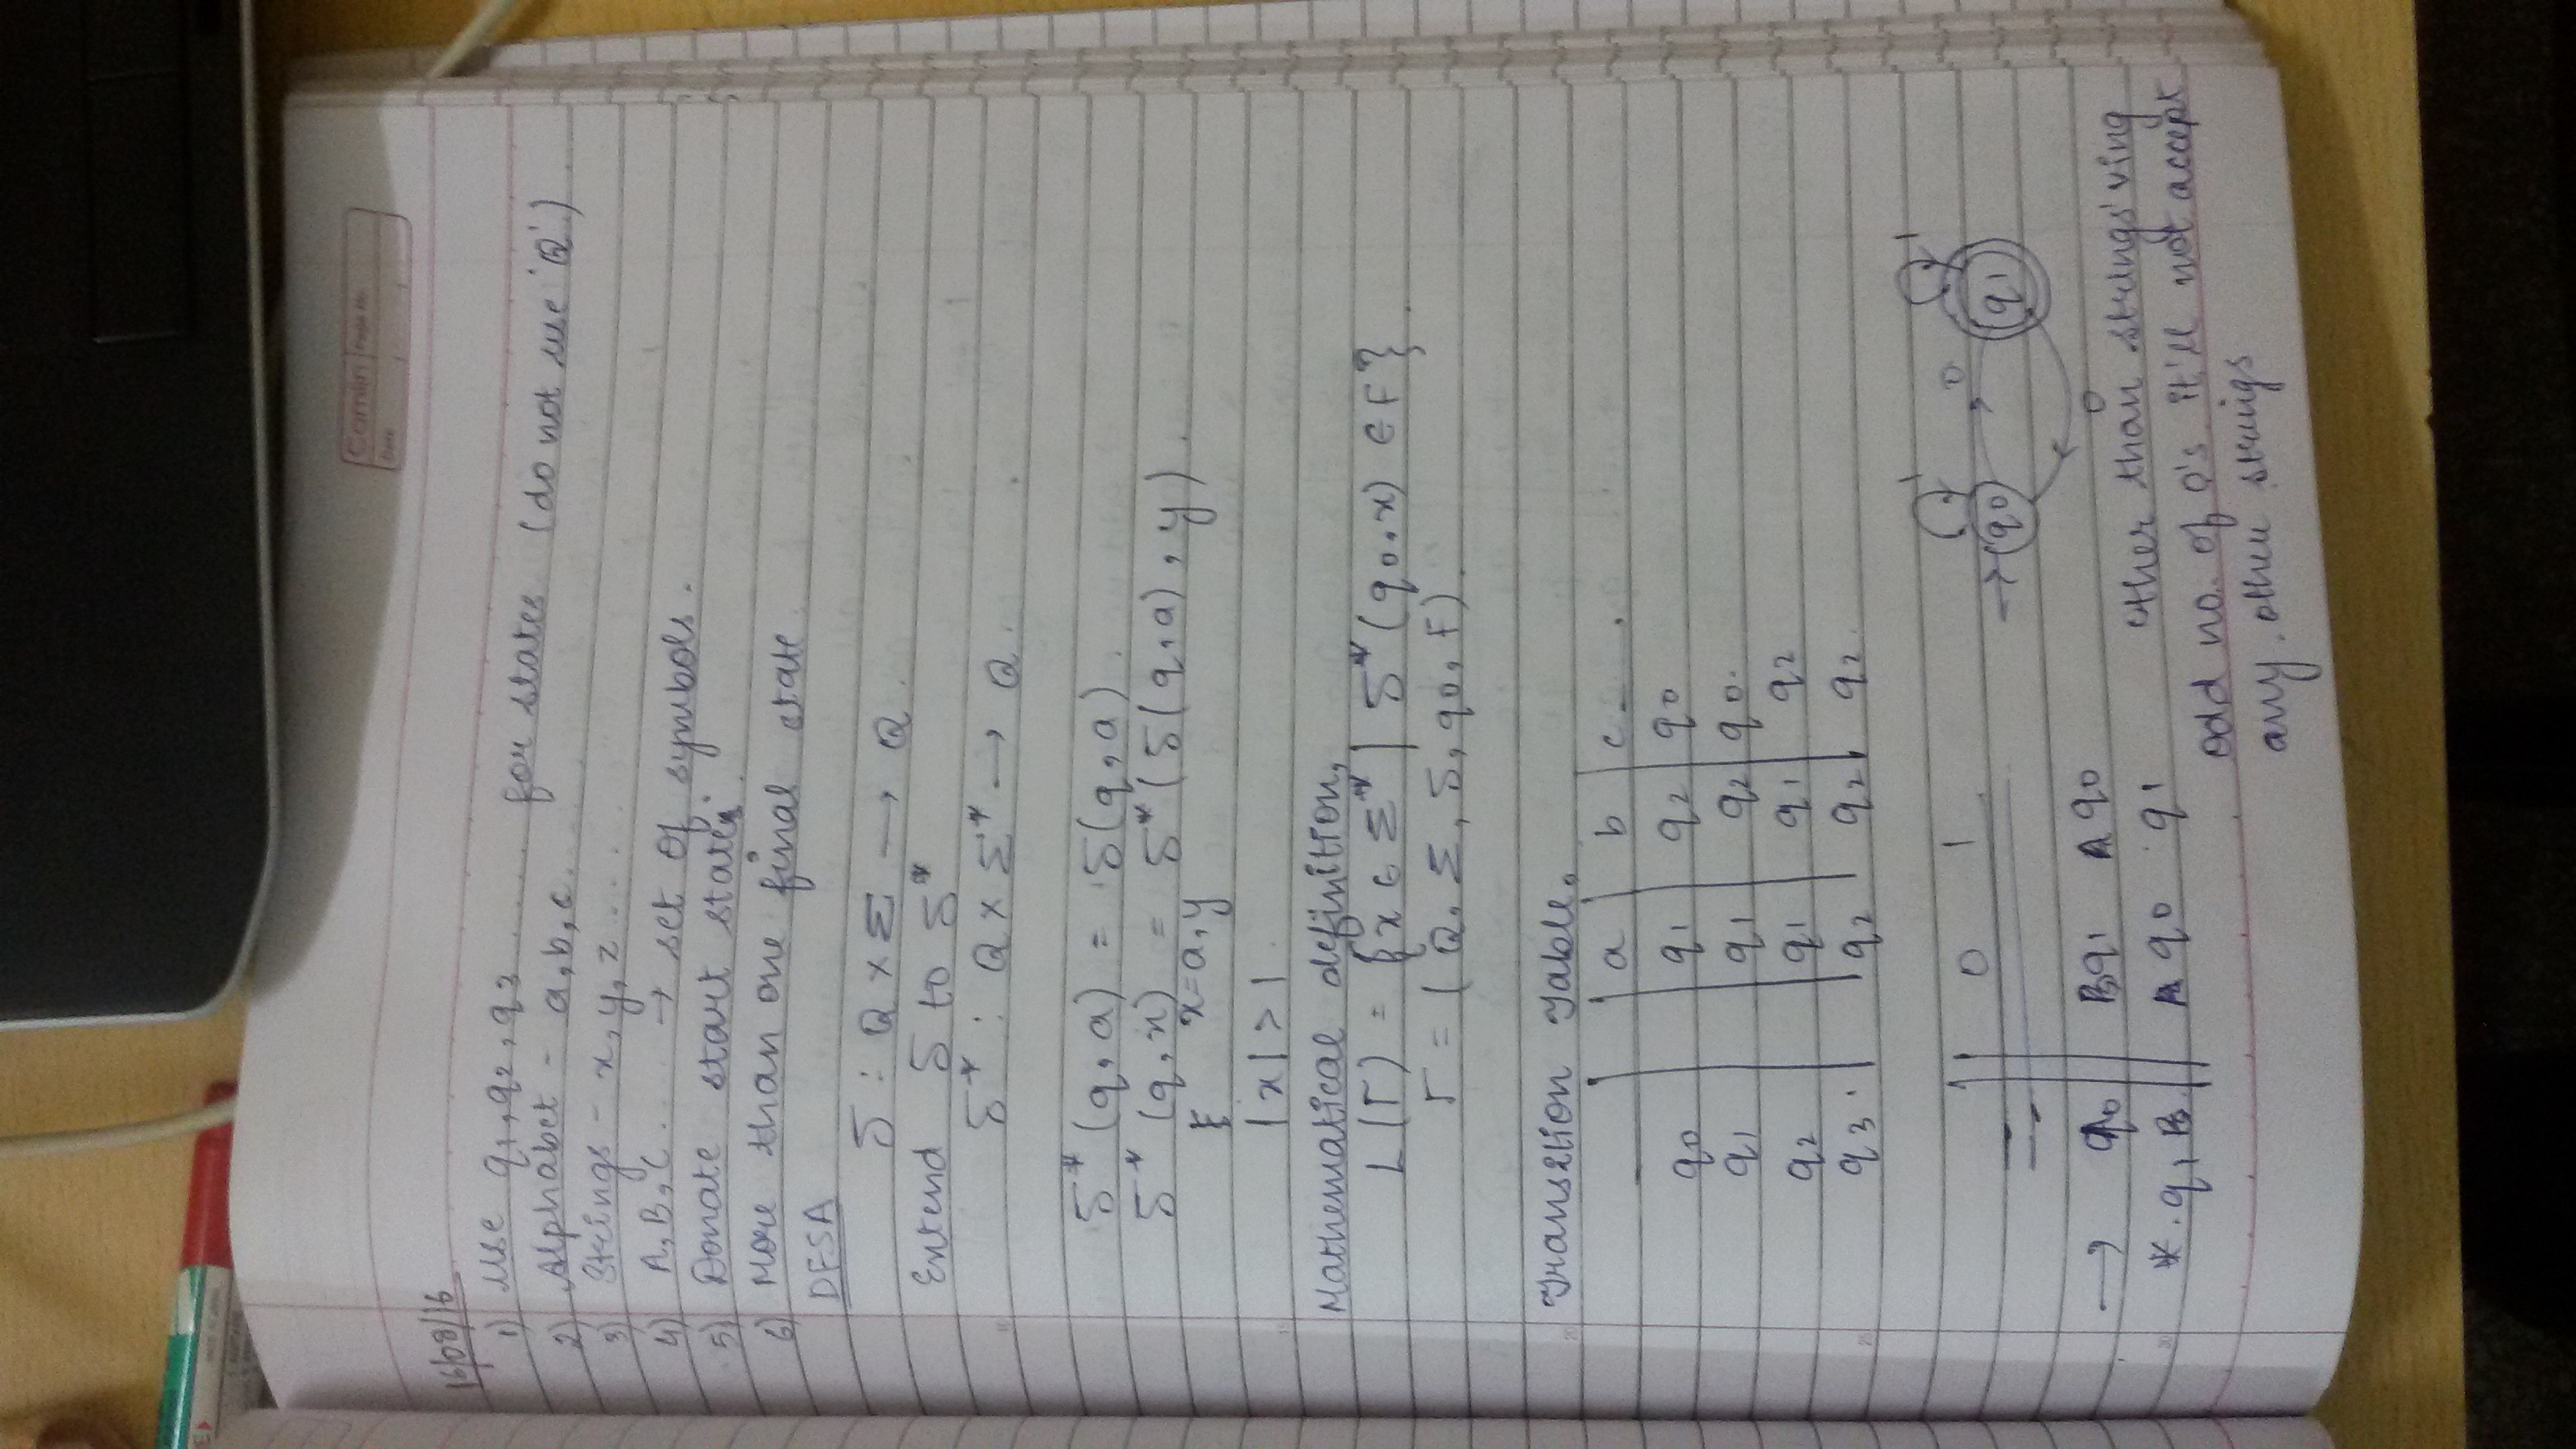 Camlin Page No.
Date / /
16/08/16
1) Use q1, q2, q3 ..... for states (do not use 'Q')
2) Alphabet - a, b, c .....
3) Strings - x, y, z ....
4) A, B, C .... → set of symbols.
5) Donate start state
6) More than one final state
DFSA
δ : Q × Σ → Q.
Extend δ to δ*
δ* : Q × Σ* → Q.
δ* (q, a) = δ(q, a).
δ* (q, x) = δ* (δ(q, a), y).
x = a, y
|x| > 1
Mathematical definition,
L(Γ) = {x ∈ Σ* | δ* (q0, x) ∈ F}.
Γ = (Q, Σ, δ, q0, F).
Transition Table.
a b c
q0 q1 q2 q0
q1 q1 q2 q0.
q2 q1 q1 q2
q3 q2 q2 q2
0 1
→ q0 B q1 A q0
* q1 B A q0 q1
1 1
→ q0 0 q1
0
other than strings 'ving
odd no. of 0's it'll not accept
any other strings